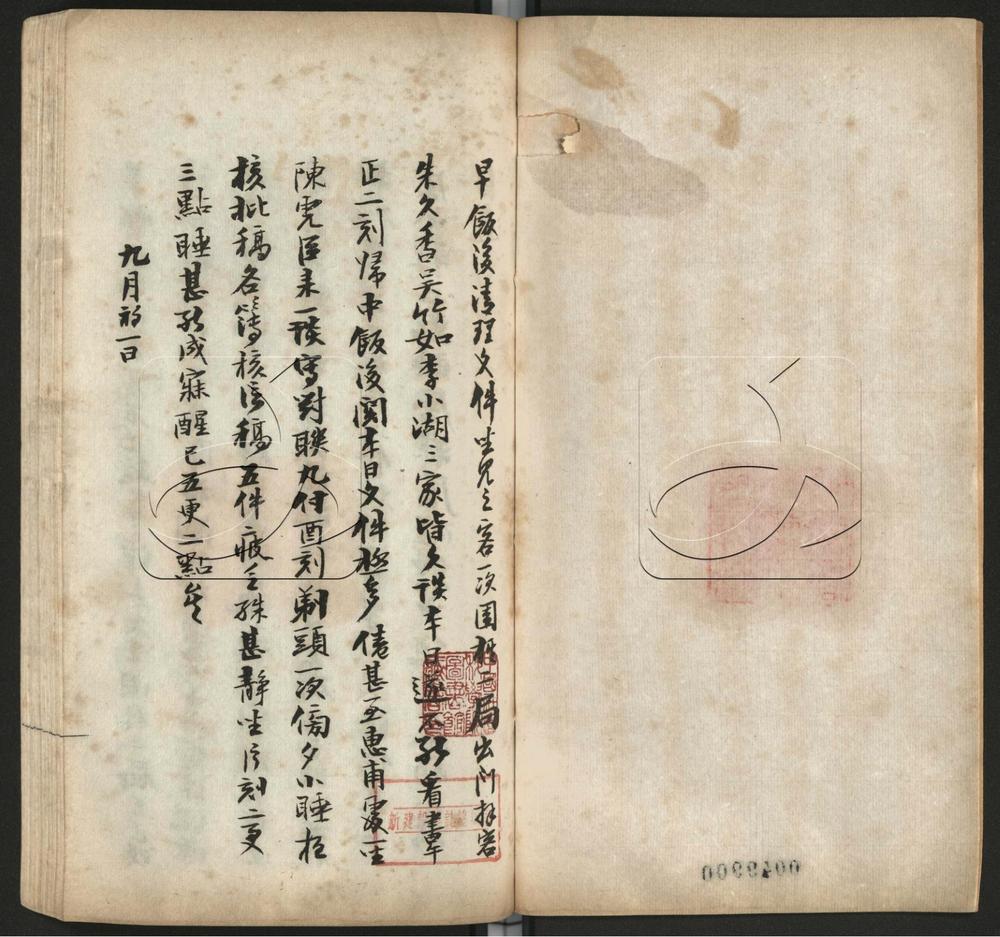 早飯後清理文件坐見之客一次圍棋二局出門拜客
朱久香吳竹如李小湖三家皆久談本日遂不能看書午
正二刻歸中飯後閱本日文件極多倦甚至惠甫處一坐
陳虎臣來一談寫對聯九付酉刻剃頭一次傍夕小睡在
核批稿各簿核信稿五件疲乏殊甚靜坐片刻二更
三點睡甚能成寐醒已五更二點矣
九月初一日